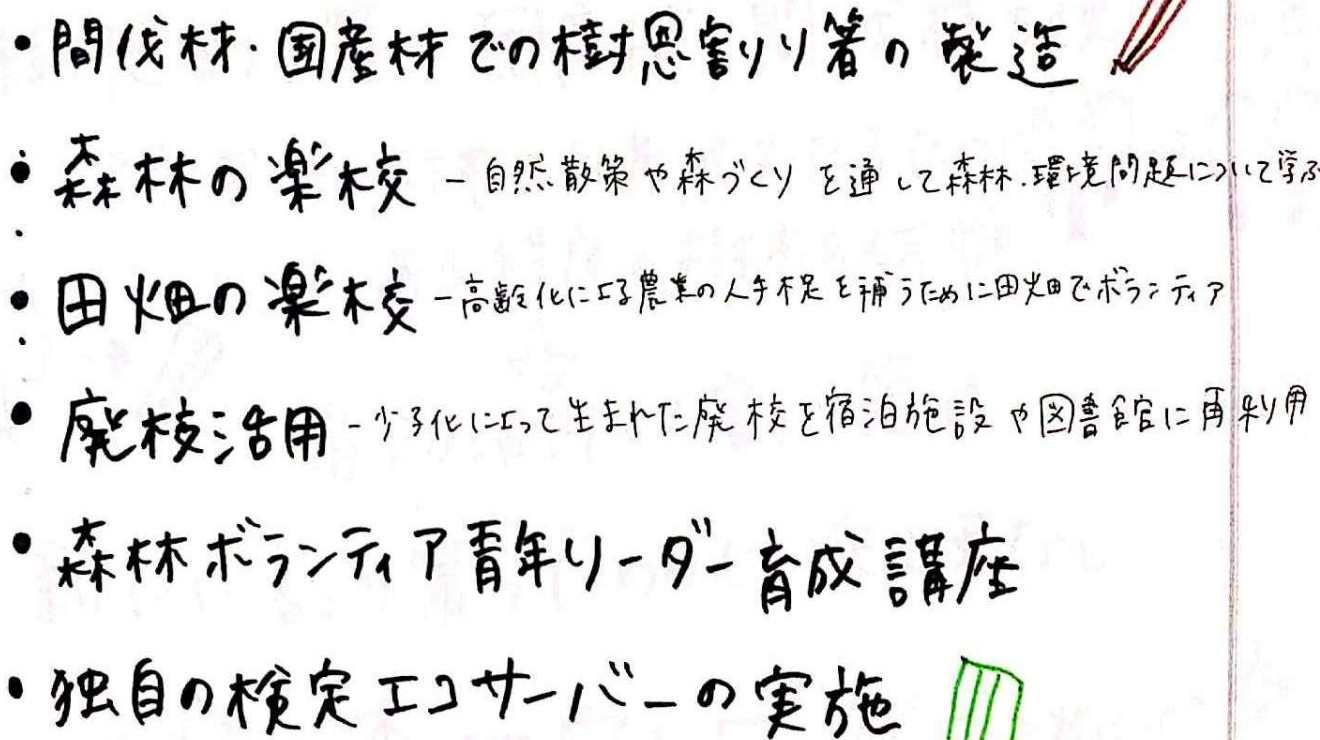 ・間伐材・国産材での樹恩割り箸の製造
・森林の楽校 - 自然散策や森づくりを通して森林・環境問題について学ぶ
・田畑の楽校 - 高齢化による農業の人手不足を補うために田畑でボランティア
・廃校活用 - 少子化によって生まれた廃校を宿泊施設や図書館に再利用
・森林ボランティア青年リーダー育成講座
・独自の検定エコサーバーの実施